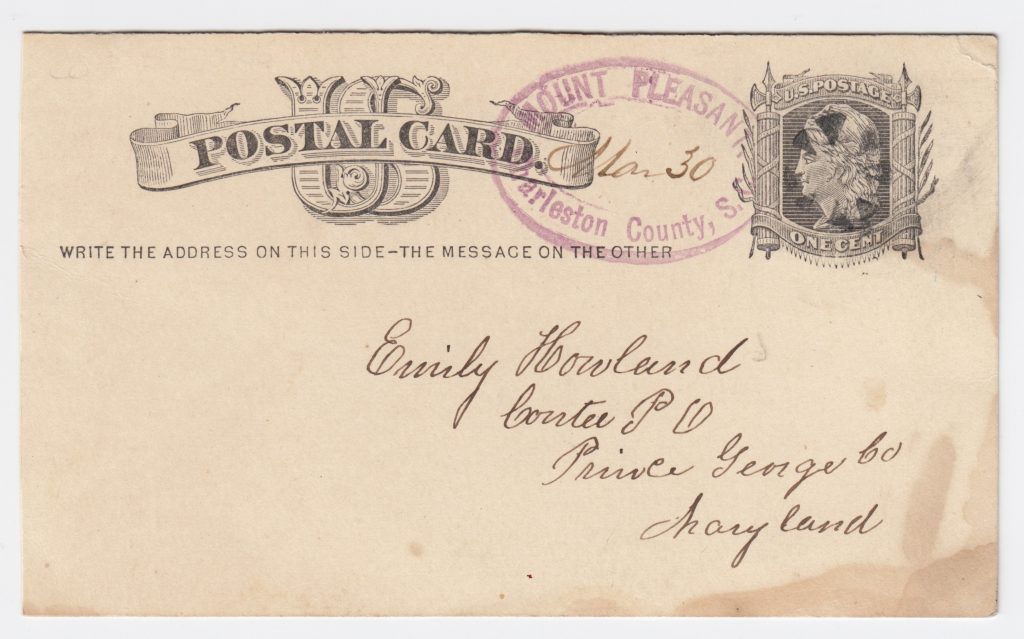 US
POSTAL CARD.
WRITE THE ADDRESS ON THIS SIDE–THE MESSAGE ON THE OTHER
MOUNT PLEASANT
Mar 30
Charleston County, S.C.
U.S. POSTAGE
ONE CENT
Emily Howland
Contee P O
Prince George Co
Maryland